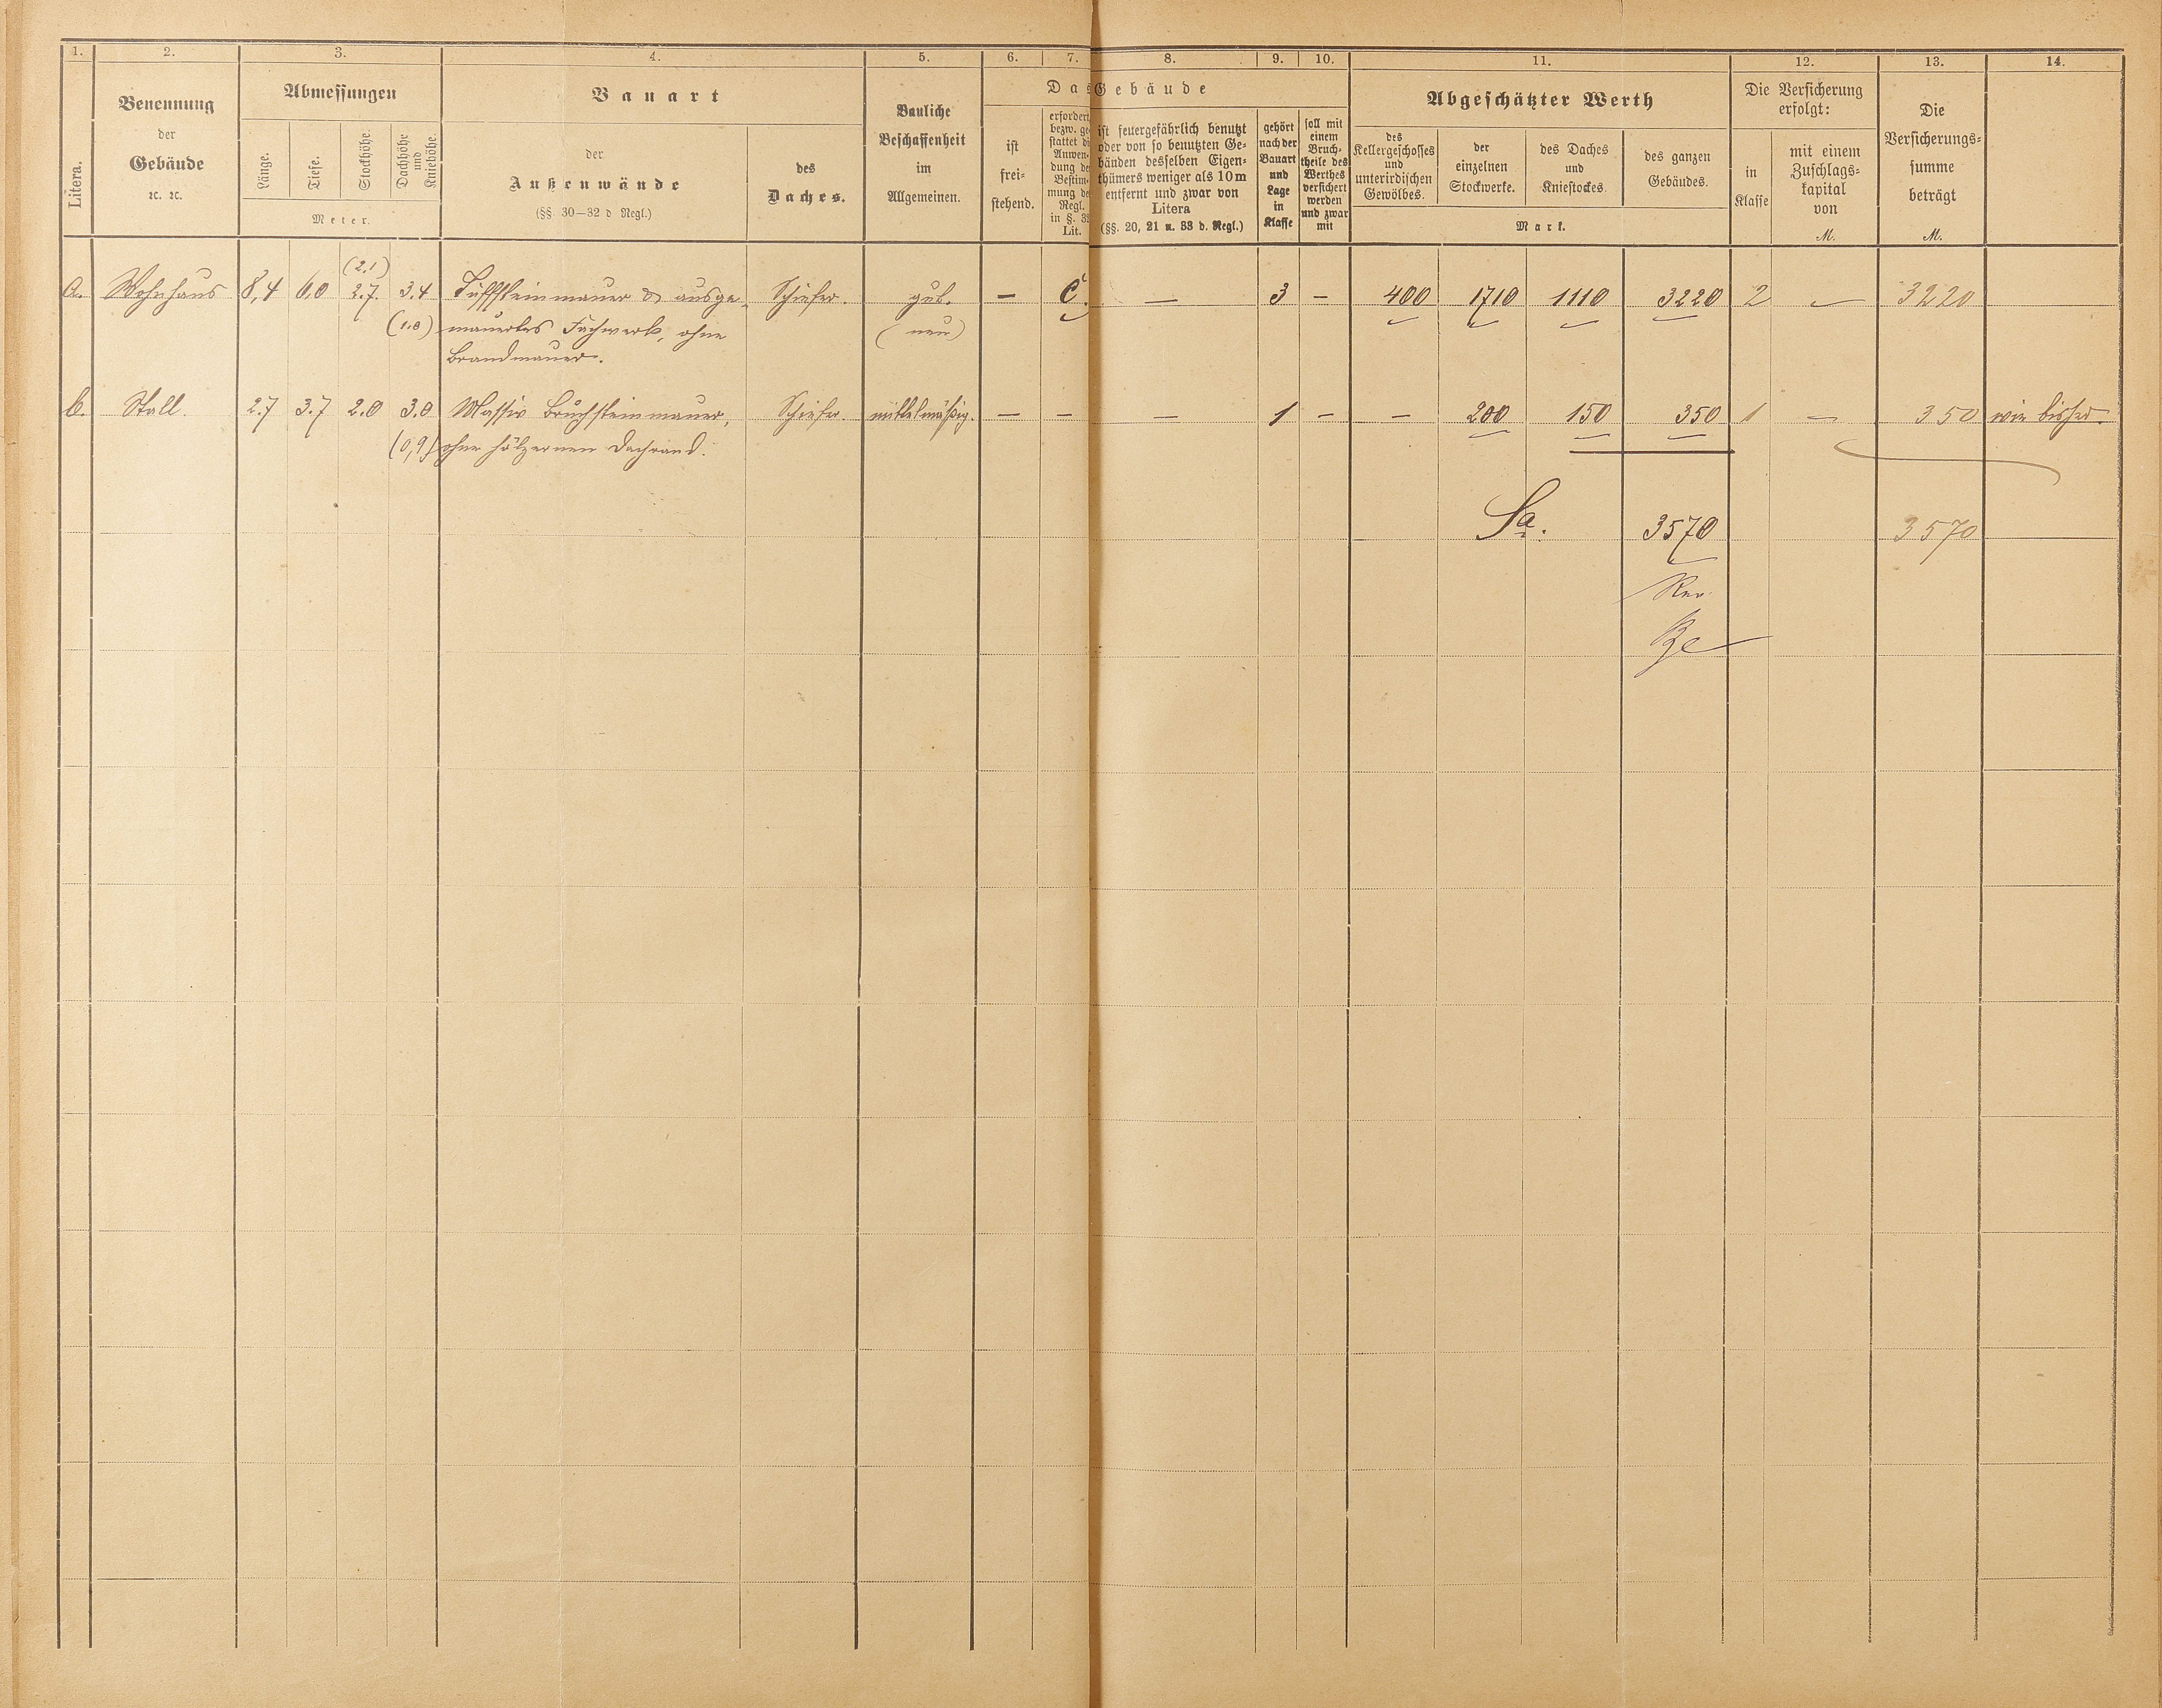 1. 2. 3. 4. 5. 6. 7. 8. 9. 10. 11. 12. 13. 14.
Litera.
Benennung
der
Gebäude
ꝛc. ꝛc.
Abmessungen
Länge.
Tiefe.
Stockhöhe.
Dachhöhe
und
Kniehöhe.
Meter.
Bauart
der
Außenwände
(§§ 30—32 d Regl.)
des
Daches.
Bauliche
Beschaffenheit
im
Allgemeinen.
Das Gebäude
ist
frei-
stehend.
erfordert
bezw. ge
stattet di
Anwen-
dung de
Bestim-
mung de
Regl.
in §. 32
Lit.
ist feuergefährlich benutzt
oder von so benutzten Ge-
bäuden desselben Eigen-
thümers weniger als 10 m
entfernt und zwar von
Litera
(§§. 20, 21 u. 33 d. Regl.)
gehört
nach der
Bauart
und
Lage
in
Klasse
soll mit
einem
Bruch-
theile des
Werthes
versichert
werden
und zwar
mit
Abgeschätzter Werth
des
Kellergeschosses
und
unterirdischen
Gewölbes.
der
einzelnen
Stockwerke.
des Daches
und
Kniestockes.
des ganzen
Gebäudes.
Mark.
Die Versicherung
erfolgt:
in
Klasse
mit einem
Zuschlags-
kapital
von
M.
Die
Versicherungs-
summe
beträgt
M.
(2.1)
a. Wohnhaus 8,4 6,0 2.7. 3.4 Tuffsteinmauer & ausge- Schiefer. gut. — C. — 3 — 400 1710 1110 3220 2 — 3220
(1.0) mauertes Fachwerk, ohne (neu)
Brandmauer.
b. Stall. 2.7 3.7 2.0 3.0 Massiv Bruchsteinmauer, Schiefer. mittelmäßig. — — — 1 — — 200 150 350 1 — 350 wie bisher.
(0,9) ohne hölzernen Dachrand.
Sa. 3570 3570
Rev.